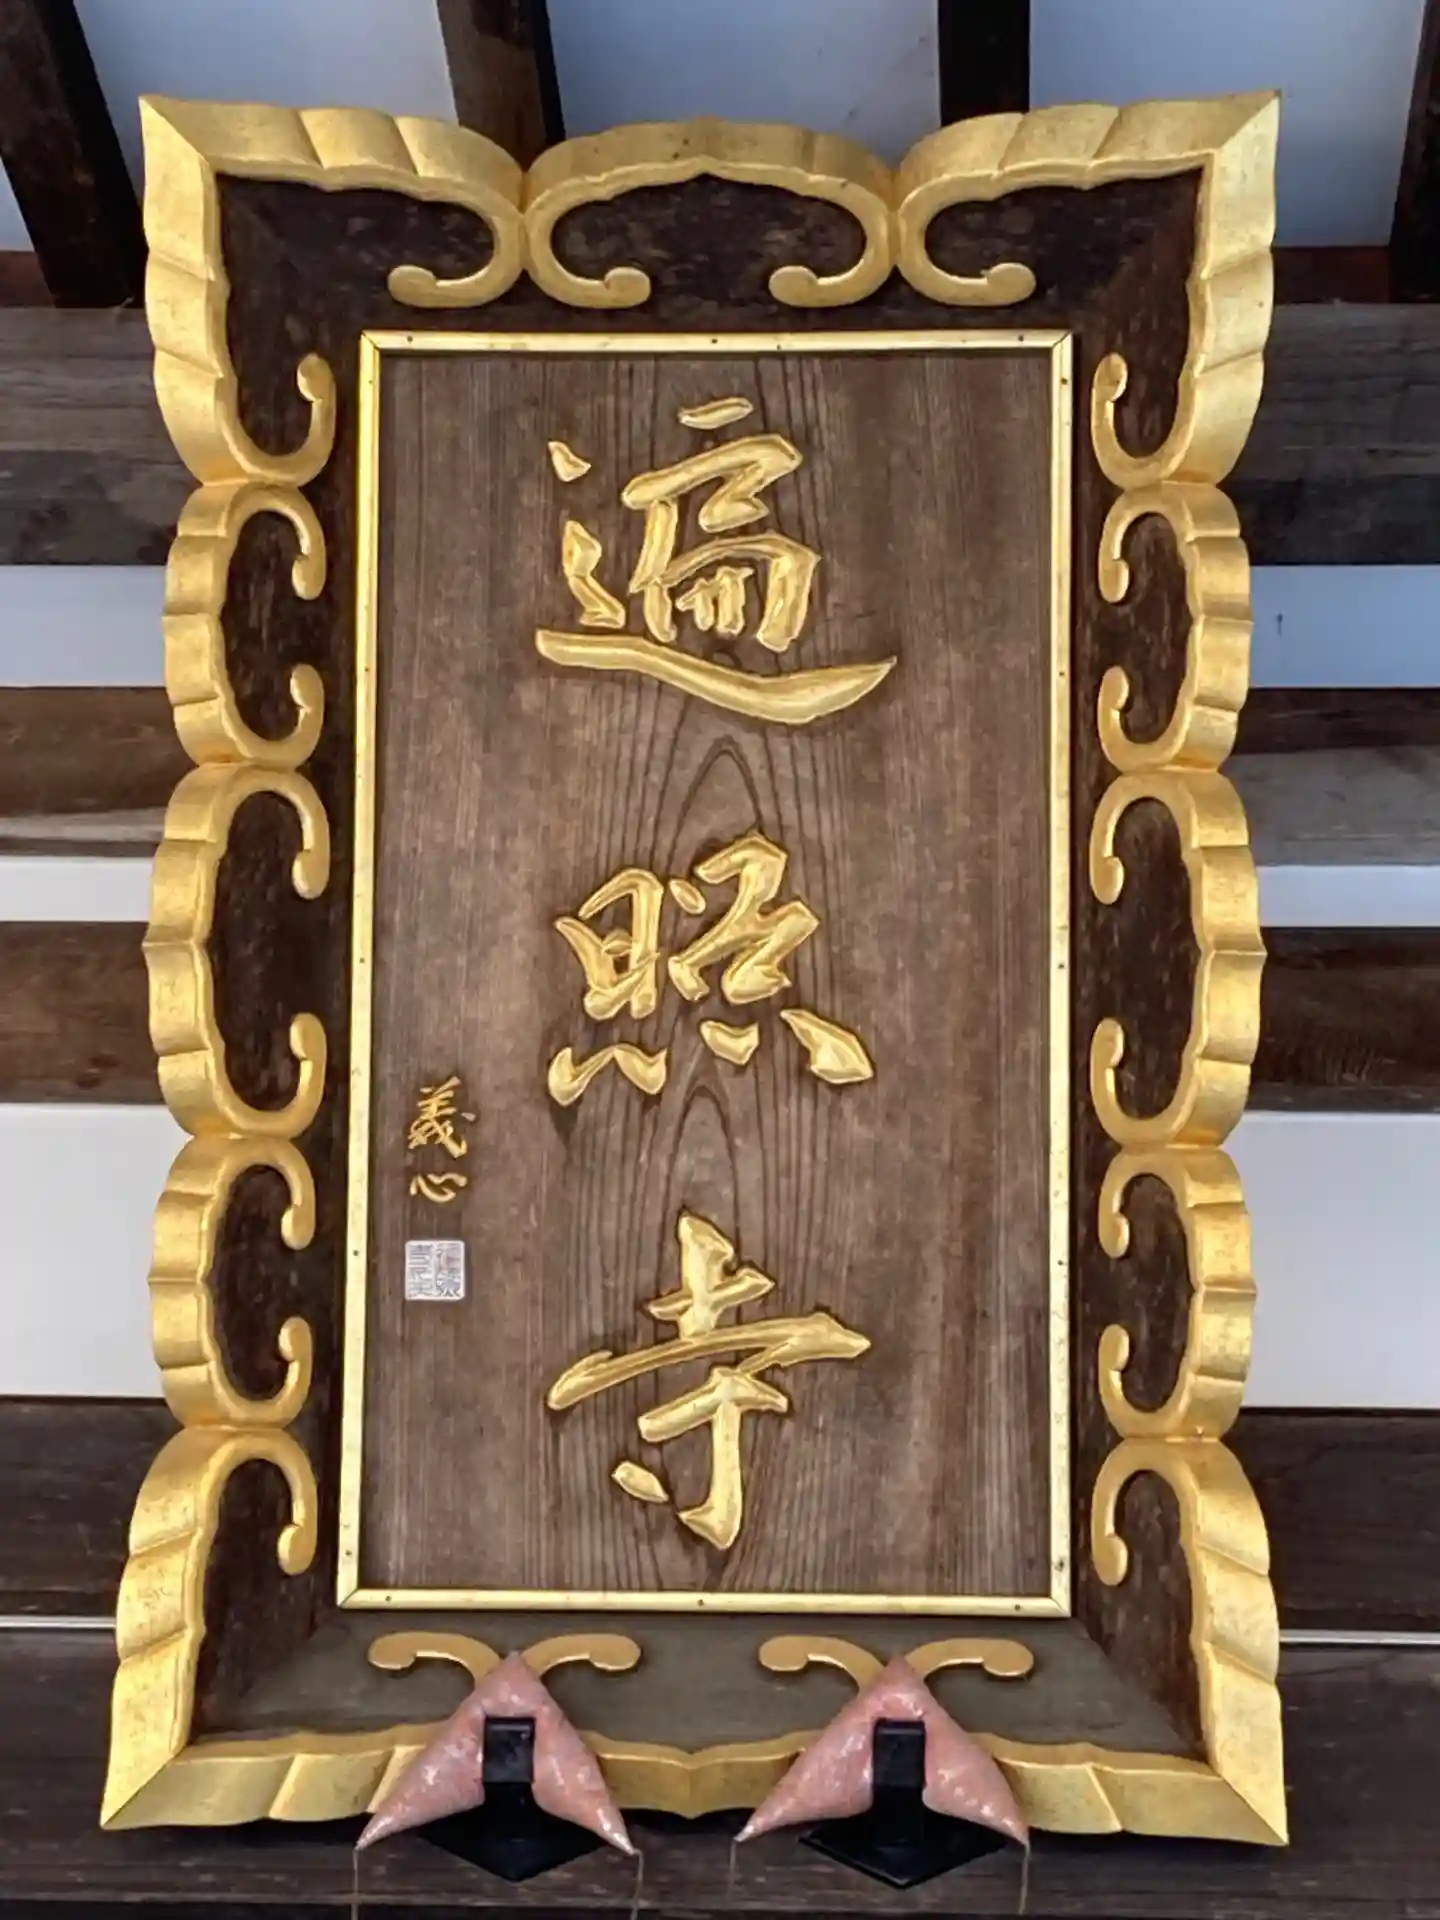 遍照寺
義心